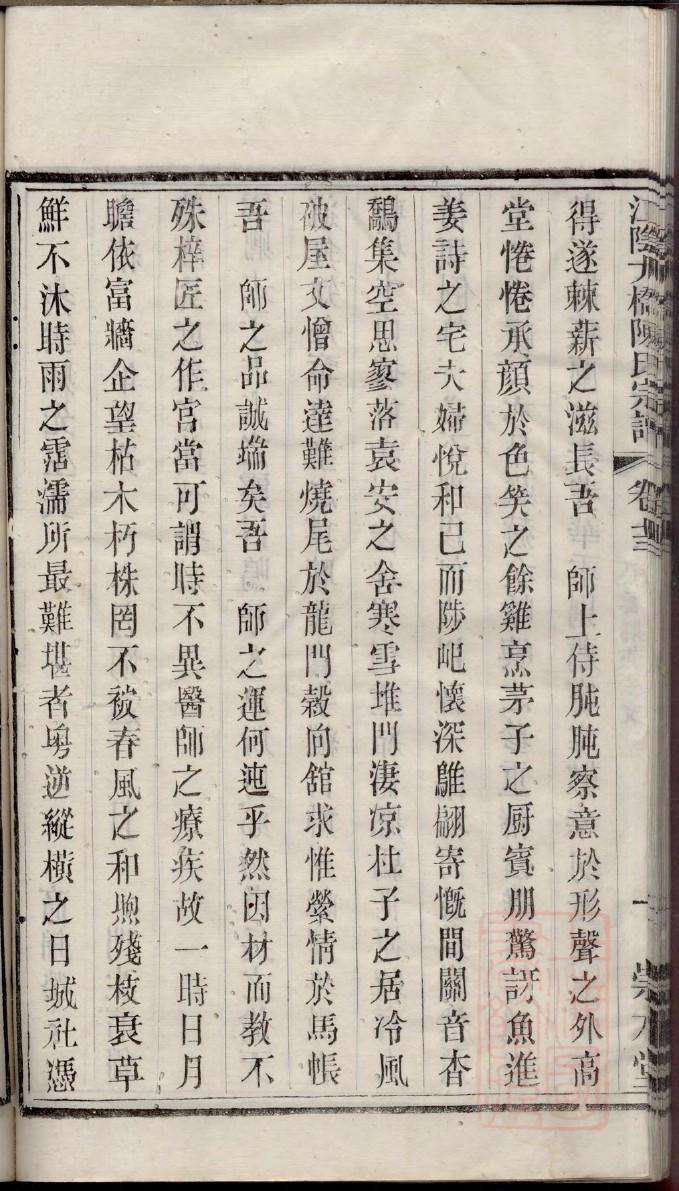 得遂棘薪之滋長吾　師上侍肫肫察意於形聲之外高
堂惓惓承顏於色笑之餘雞烹茅子之厨賓朋驚訝魚進
姜詩之宅夫婦悅和已而陟屺懷深雝翽寄慨間關音杳
鷊集空思寥落袁安之舍寒雪堆門淒凉杜子之居冷風
破屋文憎命達難燒尾於龍門穀向舘求惟縈情於馬帳
吾　師之品誠端矣吾　師之運何迍乎然因材而教不
殊梓匠之作宮當可謂時不異醫師之療疾故一時日月
瞻依富牆企望枯木朽株罔不被春風之和煦殘枝衰草
鮮不沐時雨之霑濡所最難堪者粤逆縱橫之日城社憑